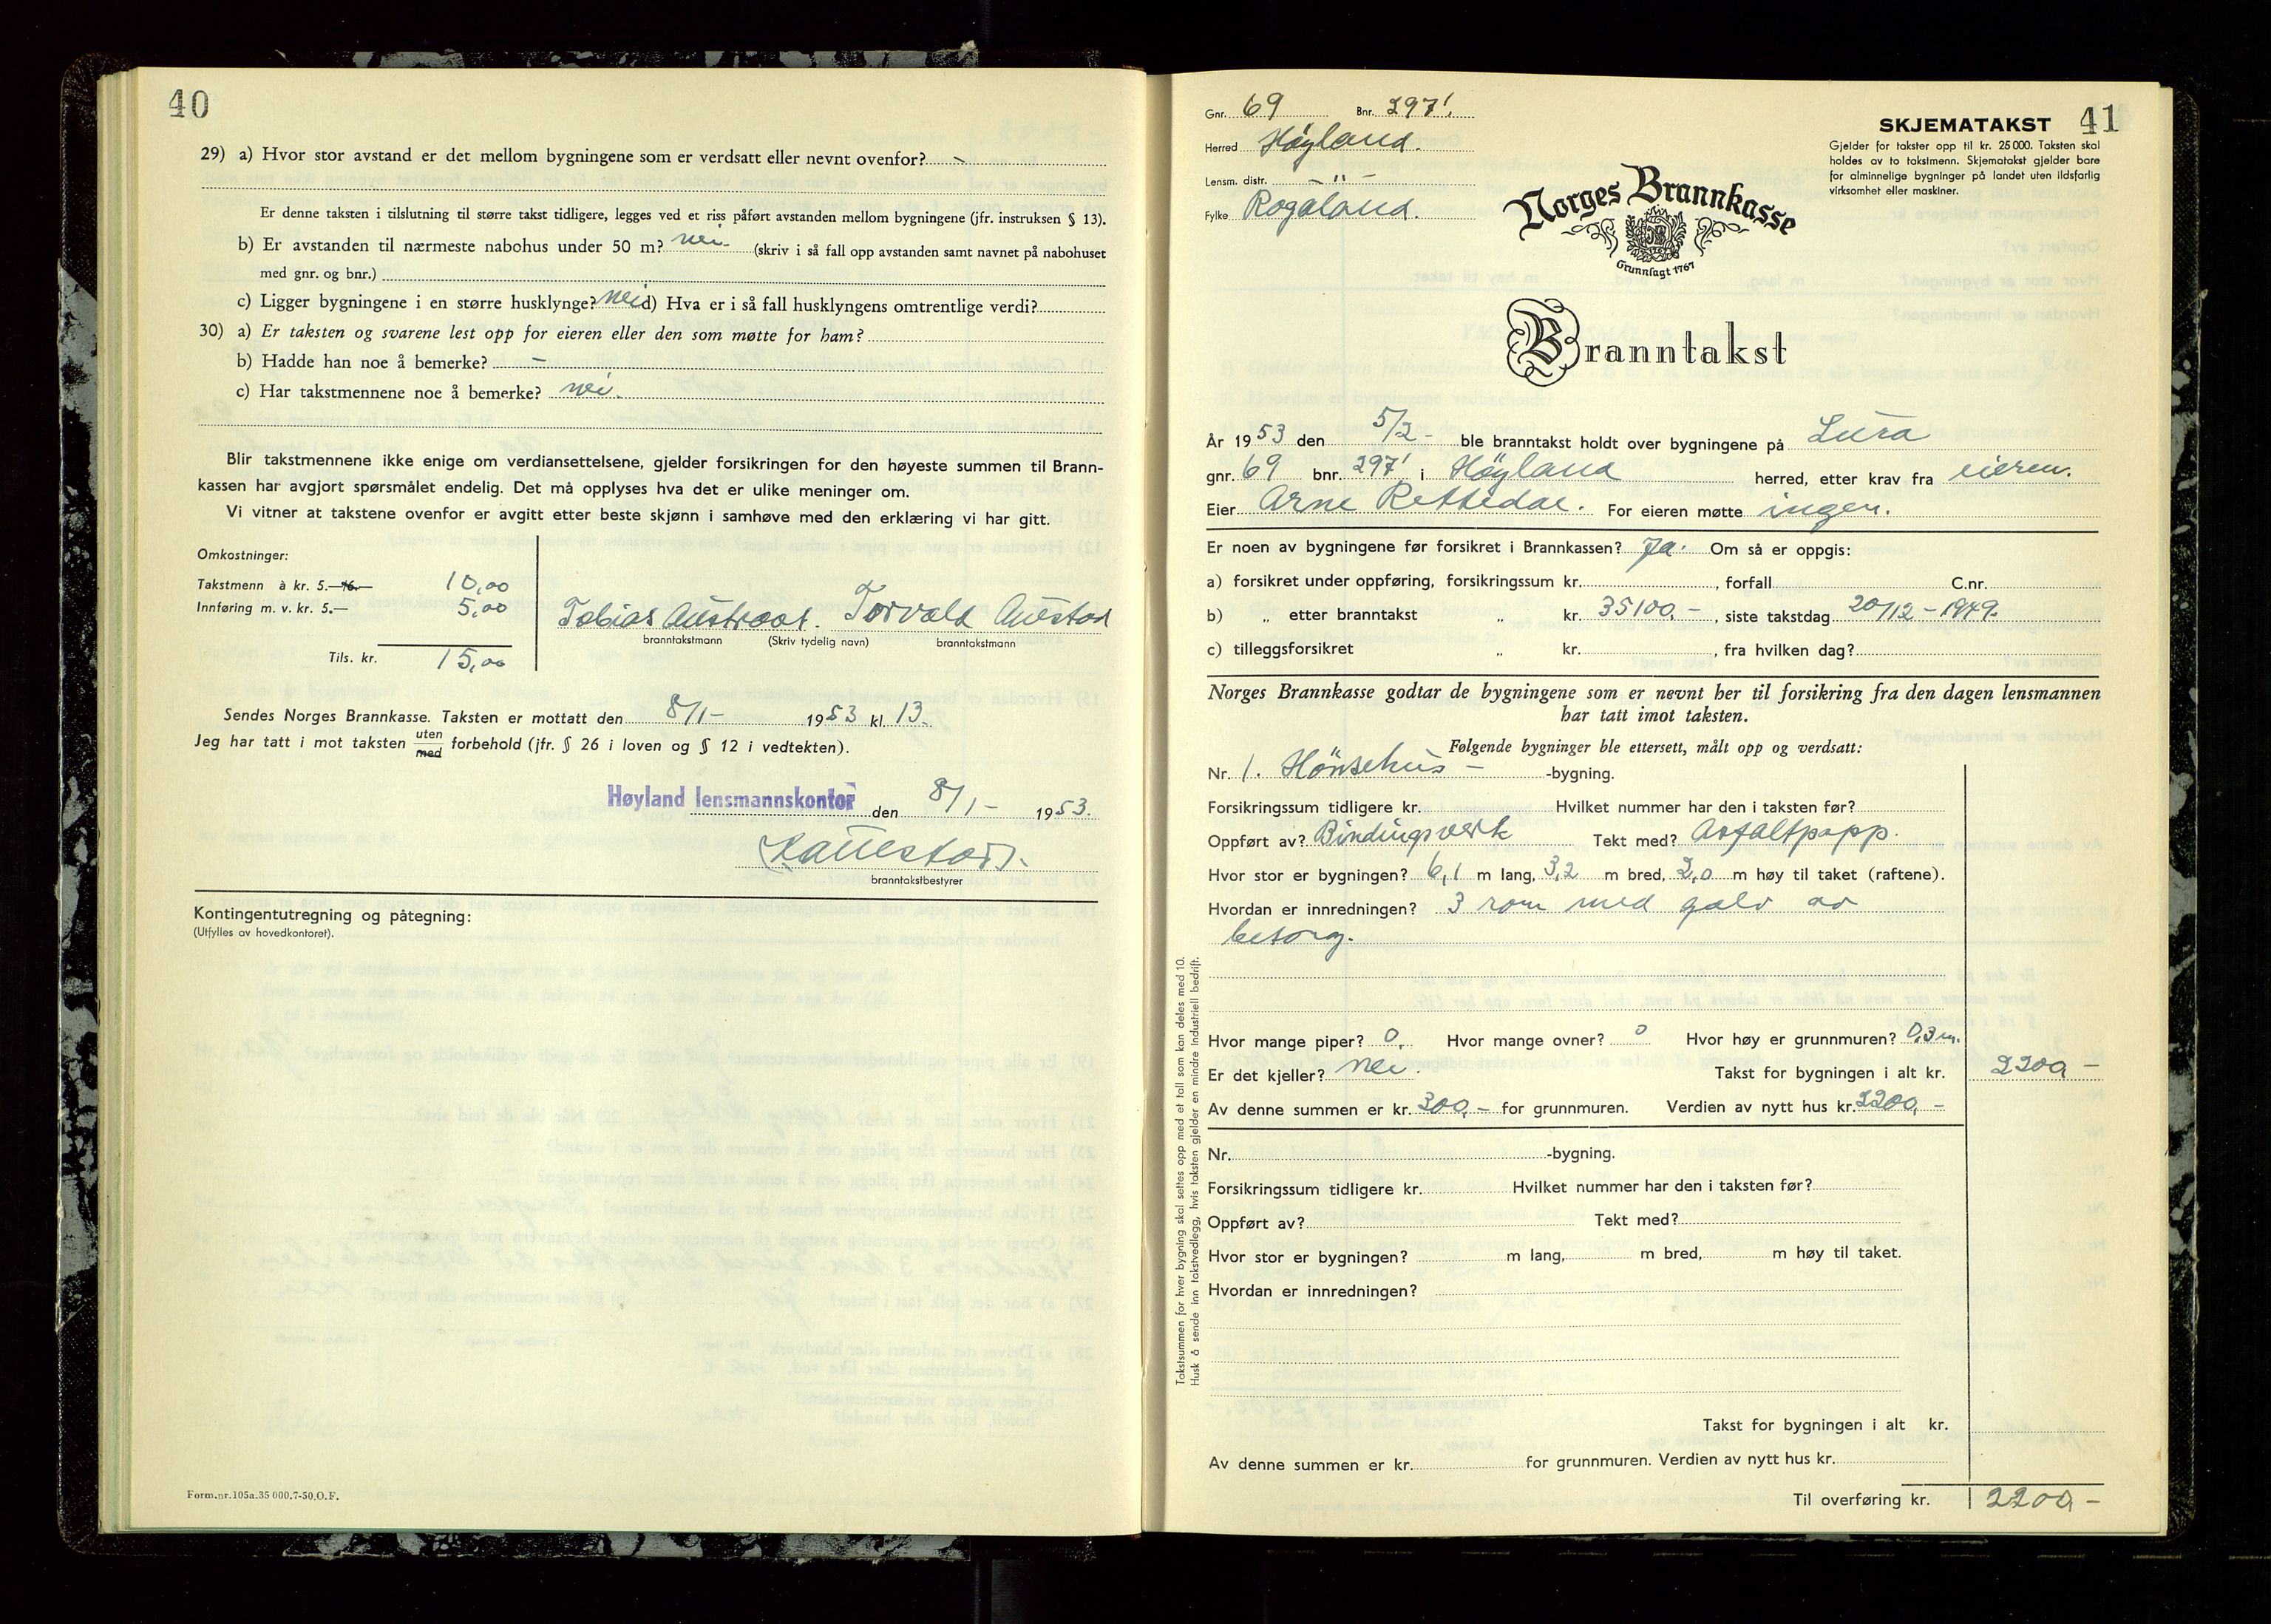 40
29) a) Hvor stor avstand er det mellom bygningene som er verdsatt eller nevnt ovenfor? -
Er denne taksten i tilslutning til større takst tidligere, legges ved et riss påført avstanden mellom bygningene (jfr. instruksen § 13).
b) Er avstanden til nærmeste nabohus under 50 m? nei- (skriv i så fall opp avstanden samt navnet på nabohuset
med gnr. og bnr.)
c) Ligger bygningene i en større husklynge? nei d) Hva er i så fall husklyngens omtrentlige verdi?
30) a) Er taksten og svarene lest opp for eieren eller den som møtte for ham?
b) Hadde han noe å bemerke? -
c) Har takstmennene noe å bemerke? nei.
Blir takstmennene ikke enige om verdiansettelsene, gjelder forsikringen for den høyeste summen til Brann-
kassen har avgjort spørsmålet endelig. Det må opplyses hva det er ulike meninger om.
Vi vitner at takstene ovenfor er avgitt etter beste skjønn i samhøve med den erklæring vi har gitt.
Omkostninger:
Takstmenn à kr. 5.— 10,00
Innføring m. v. kr. 5.— 5,00
Tils. kr. 15,00
Tobias Austraat. Torvald Austad
branntakstmann (Skriv tydelig navn) branntakstmann
Sendes Norges Brannkasse. Taksten er mottatt den 8/1- 1953 kl. 13.
Jeg har tatt i mot taksten uten med forbehold (jfr. § 26 i loven og § 12 i vedtekten).
Høyland lensmannskontor den 8/1- 1953.
branntakstbestyrer
Kontingentutregning og påtegning:
(Utfylles av hovedkontoret).
Form.nr.105a.35 000.7-50.O.F.
Gnr. 69 Bnr. 297'.
Herred Høyland.
Lensm. distr. - " -
Fylke Rogaland.
SKJEMATAKST 41
Gjelder for takster opp til kr. 25 000. Taksten skal
holdes av to takstmenn. Skjematakst gjelder bare
for alminnelige bygninger på landet uten ildsfarlig
virksomhet eller maskiner.
Norges Brannkasse
Grunnlagt 1767
Branntakst
År 1953 den 5/2- ble branntakst holdt over bygningene på Lura
gnr. 69 bnr. 297' i Høyland herred, etter krav fra eieren.
Eier Arne Rettedal. For eieren møtte ingen.
Er noen av bygningene før forsikret i Brannkassen? Ja. Om så er oppgis:
a) forsikret under oppføring, forsikringssum kr. , forfall C.nr.
b) „ etter branntakst „ kr. 35100,- , siste takstdag 20/12-1949.
c) tilleggsforsikret „ kr. , fra hvilken dag?
Norges Brannkasse godtar de bygningene som er nevnt her til forsikring fra den dagen lensmannen
har tatt imot taksten.
Følgende bygninger ble ettersett, målt opp og verdsatt:
Nr. 1. Hönsehus - -bygning.
Forsikringssum tidligere kr. Hvilket nummer har den i taksten før?
Oppført av? Bindingsverk Tekt med? Asfaltpapp.
Hvor stor er bygningen? 6,1 m lang, 3,2 m bred, 2,0 m høy til taket (raftene).
Hvordan er innredningen? 3 rom med golv av
betong.
Hvor mange piper? 0. Hvor mange ovner? 0 Hvor høy er grunnmuren? 0,3 m.
Er det kjeller? nei. Takst for bygningen i alt kr. 2200,-
Av denne summen er kr. 300,- for grunnmuren. Verdien av nytt hus kr. 2200,-
Nr. -bygning.
Forsikringssum tidligere kr. Hvilket nummer har den i taksten før?
Oppført av? Tekt med?
Hvor stor er bygningen? m lang, m bred, m høy til taket.
Hvordan er innredningen?
Takst for bygningen i alt kr.
Av denne summen er kr. for grunnmuren. Verdien av nytt hus kr.
Til overføring kr. 2200,-
Takstsummen for hver bygning skal settes opp med et tall som kan deles med 10.
Husk å sende inn takstvedlegg, hvis taksten gjelder en mindre industriell bedrift.